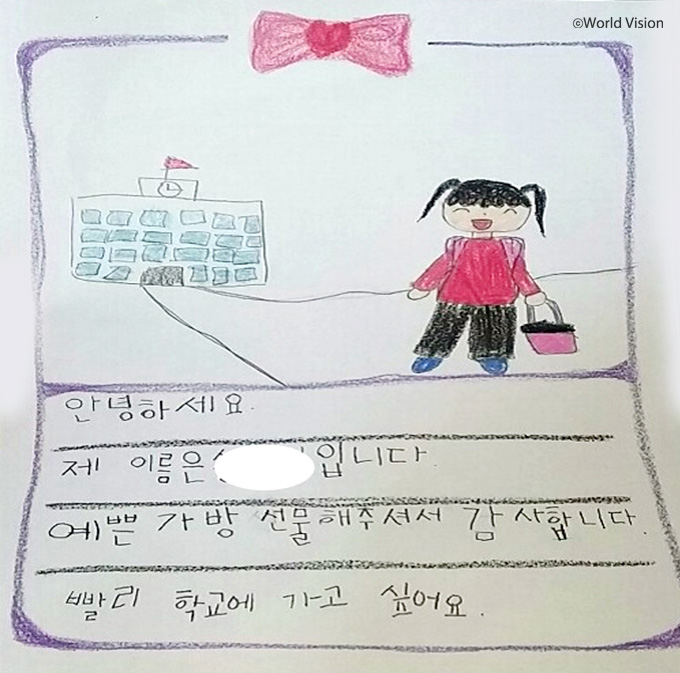 ©World Vision
안녕하세요.
제 이름은 입니다.
예쁜 가방 선물해주셔서 감사합니다.
빨리 학교에 가고 싶어요.